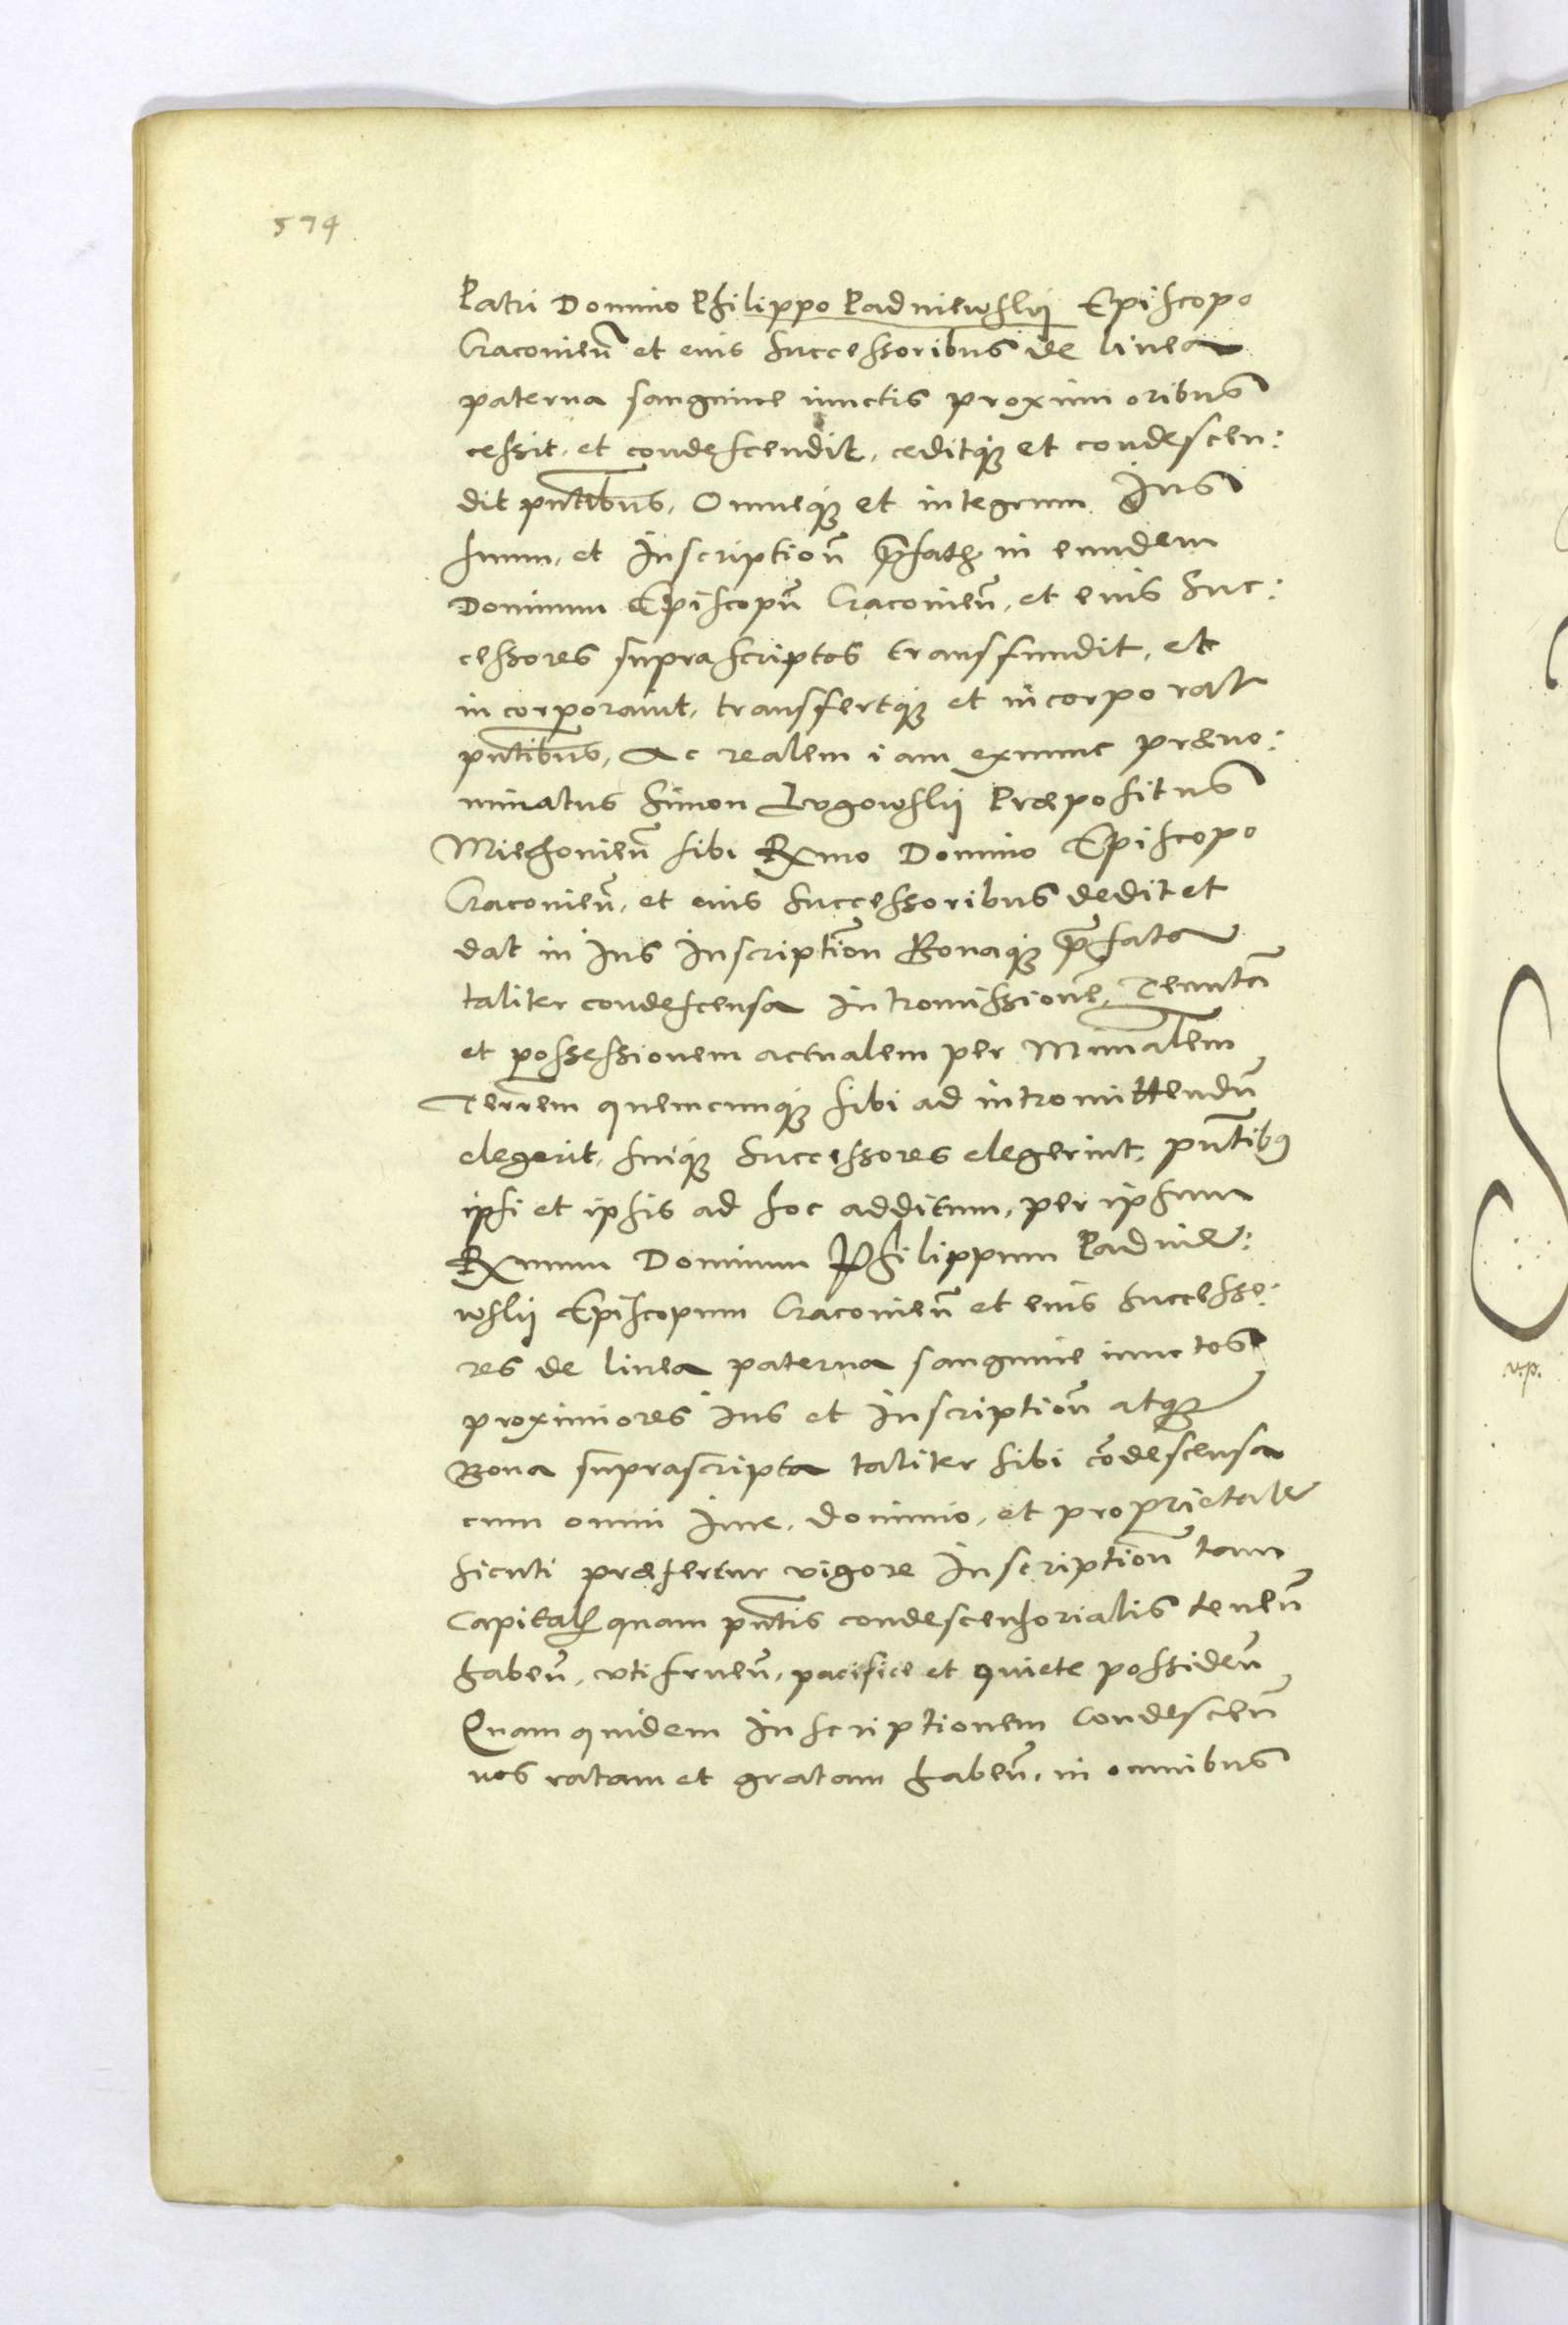 574
Patri Domino Philippo Padniewskij Episcopo
Cracovieñ et eius Successoribus de linea
paterna sanguine iunctis proximioribus
cessit, et condescendit, ceditq₃ et condescen:
dit pñtibus, Omneq₃ et integrum Ius
suum, et Inscriptioñ p̃fatħ in eundem
Dominum Episcopũ Cracovieñ, et eius Suc:
cessores suprascriptos transfundit, et
incorporavit, transfertq₃ et incorporat
pñtibus, Ac realem iam exnunc præno:
minatus Simon Lvgowskij Præpositus
Miechovieñ sibi Rx̃mo Domino Episcopo
Cracovieñ, et eius Successoribus dedit et
dat in Ius Inscriptioñ Bonaq₃ p̃fata
taliter condescensa intromissionẽ, Tenutã
et possessionem actualem per Minr̃alem
Terr̃em quemcunq₃ sibi ad intromittendũ
elegerit, suiq₃ Successores elegerint, pñtibꝯ
ipsi et ipsis ad hoc additum, per ipsum
Rx̃mum Dominum Philippum Padnie:
wskij Episcopum Cracovieñ et eius Successo:
res de linea paterna sanguine iunctos
proximiores Ius et Inscriptioñ atq₃
Bona suprascripta taliter sibi cõdescensa
cum omni iure, dominio, et proprietate
sicuti præfertur vigore Inscriptioñ tam
Capitał quam pñtis condescensorialis teneñ
habeñ, vti frueñ, pacifice et quiete possideñ
Quam quidem inscriptionem Condesceñ
nos ratam et gratam habeñ, in omnibus
v.p.